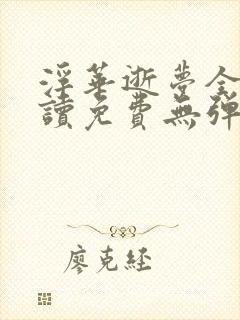 淫華逝夢全
讀免費無彈
廖克經